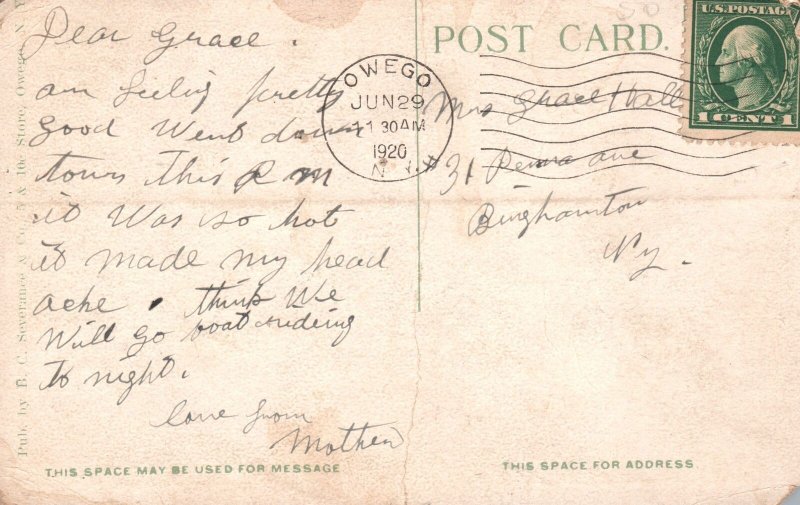 Dear Grace.
am feeling pretty
good Went down
town this P m
it Was so hot
it made my head
ache. think We
Will go boat ridieng
to night.
love from
Mother
THIS SPACE MAY BE USED FOR MESSAGE
Pub. by B. C. Severance & Co., 5 & 10c Store, Owego, N. Y.
POST CARD.
U.S. POSTAGE
1 CENT 1
OWEGO
JUN 29
11 30 AM
1920
N.Y.
Mrs Grace Hall
#31 Penna ave
Binghamton
Ny.
THIS SPACE FOR ADDRESS